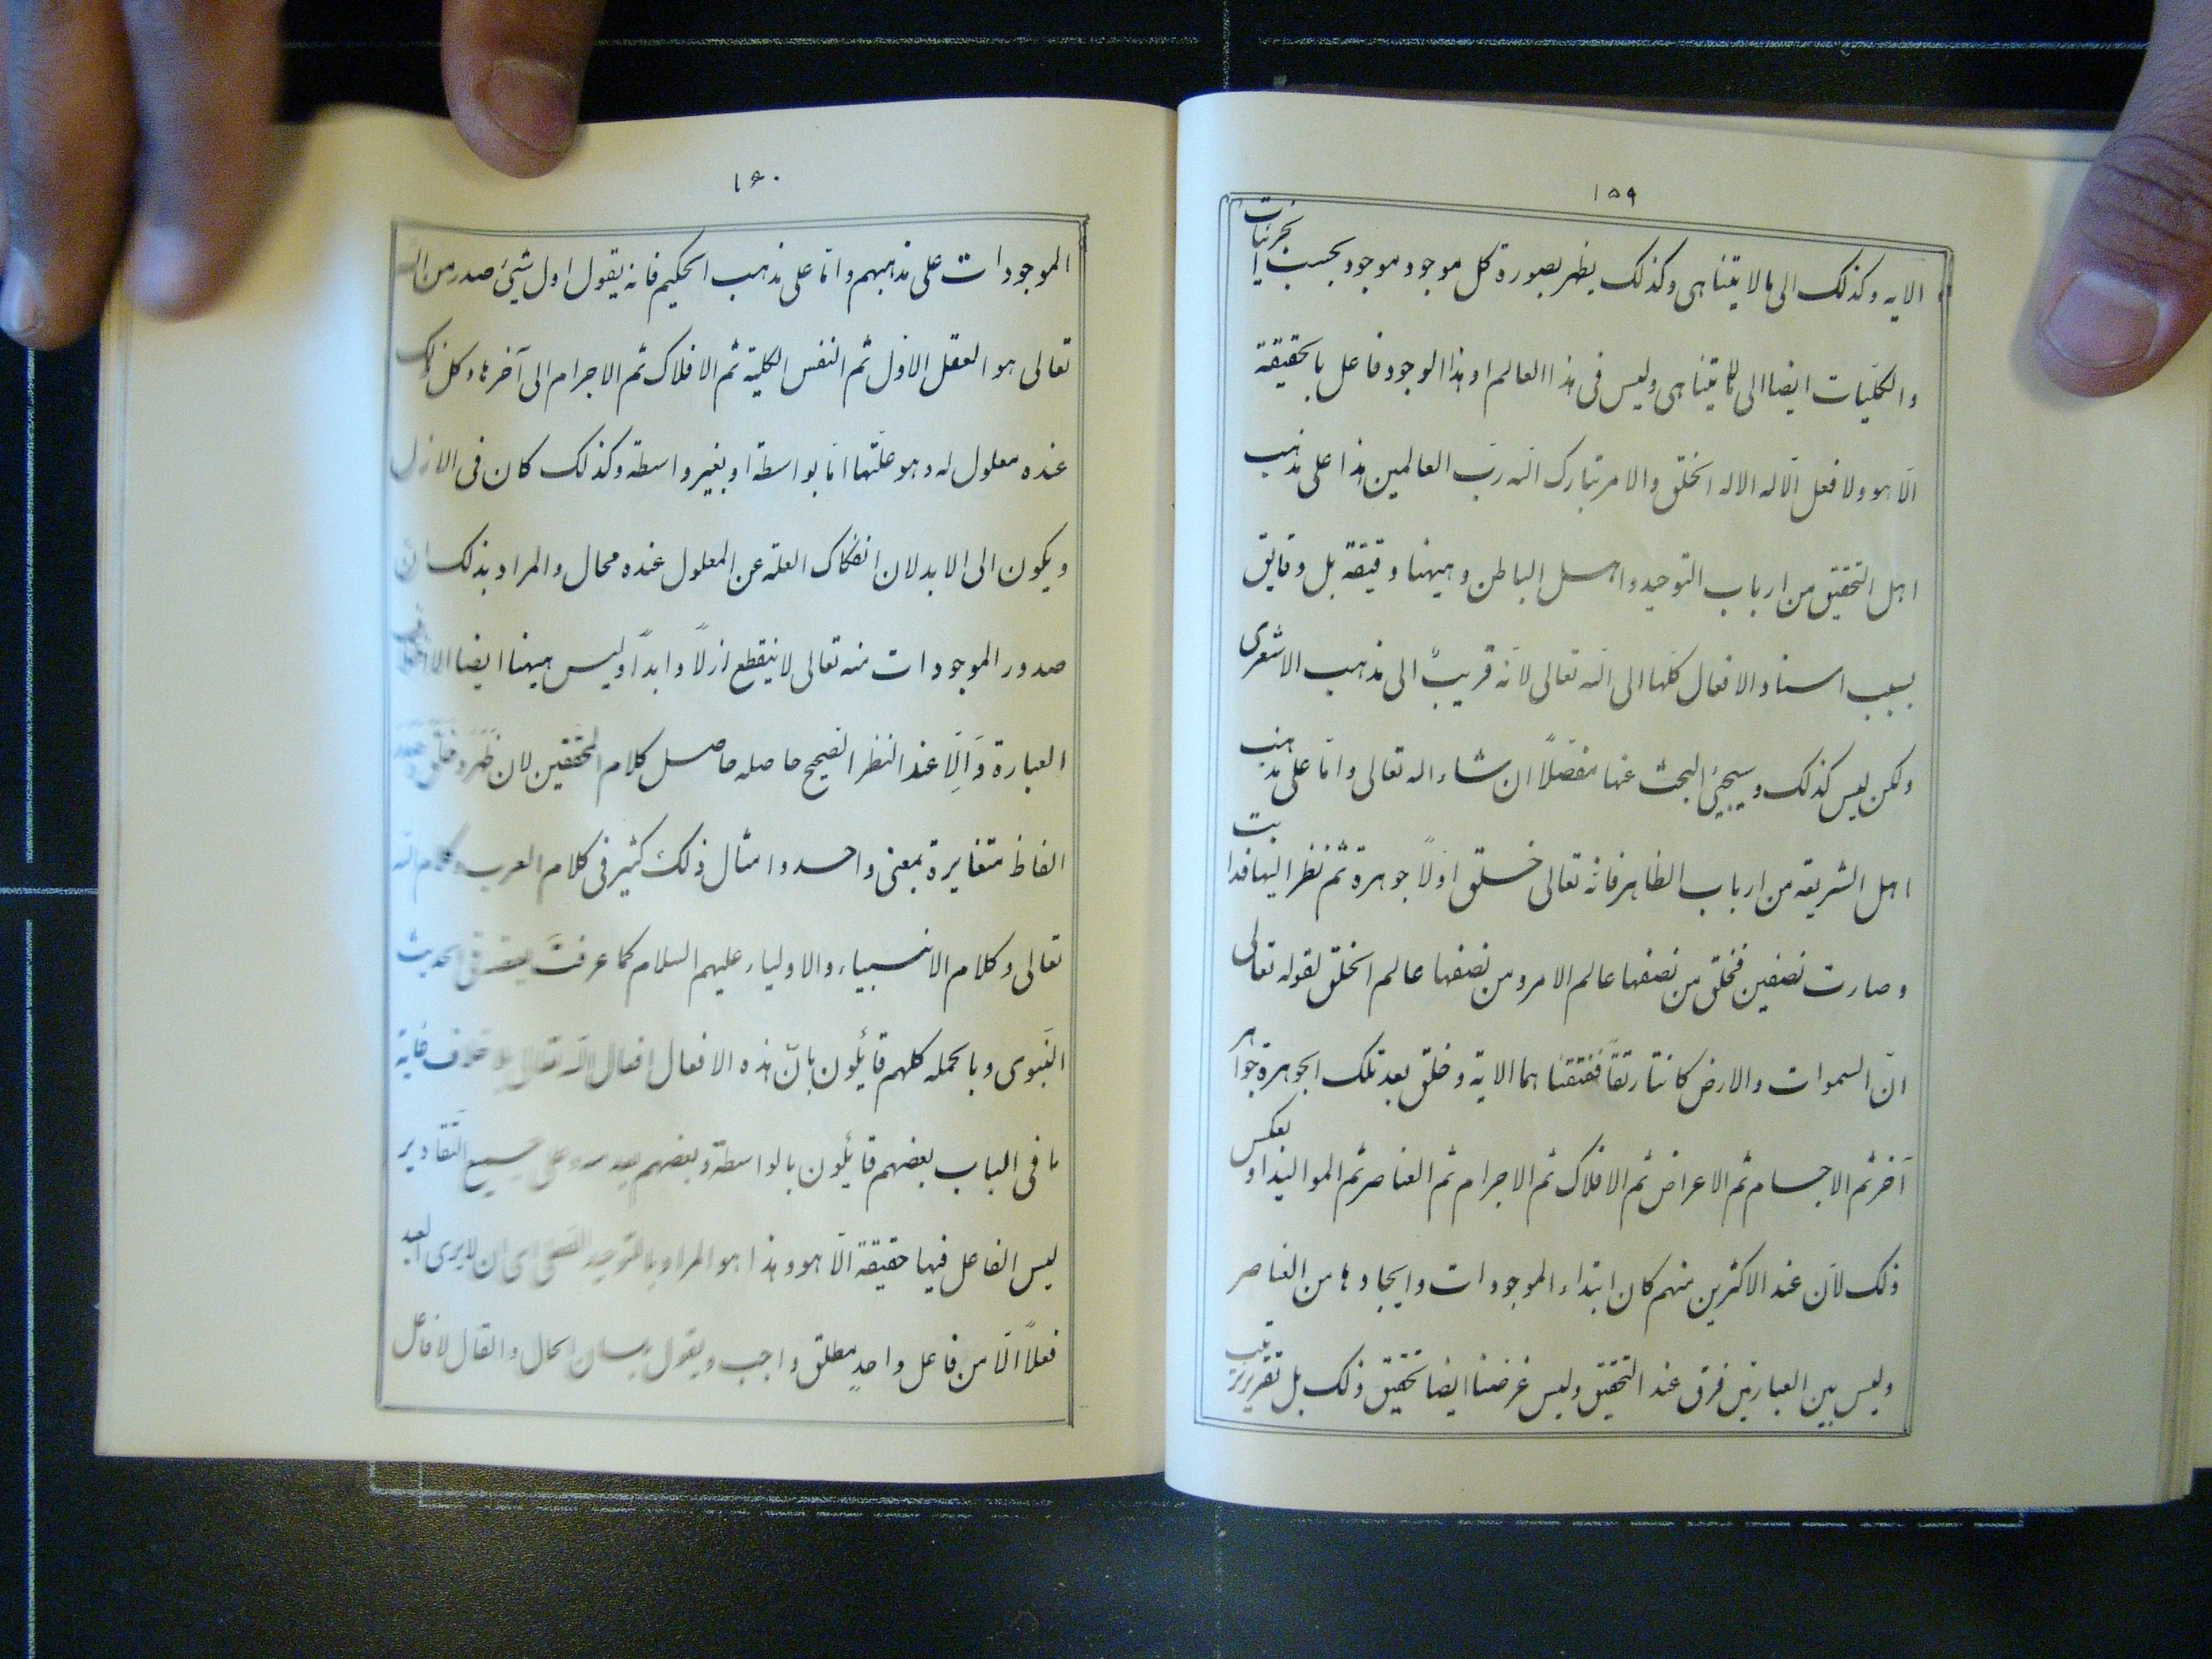 ۱۵۹
الايه وكذلك الى مالا يتناهى وكذلك يظهر بصورة كل موجود موجود بحسب الجزئيات
والكليّات ايضا الى مالا يتناهى وليس فى هذا العالم او هذا الوجود فاعل بالحقيقة
الّا هو ولا فعل الّا له الا له الخلق والامر تبارك الله ربّ العالمين هذا على مذهب
اهل التحقيق من ارباب التوحيد واهل الباطن وهيهنا دقيقة بل دقايق
بسبب اسناد الافعال كلّها الى الله تعالى لانّه قريبٌ الى مذهب الاشعرى
ولكن ليس كذلك وسيجيئ البحث عنها مفصّلاً ان شاء الله تعالى وامّا على مذهب
اهل الشريعة من ارباب الظاهر فانّه تعالى خلق اولاً جوهرة ثم نظر اليها فذابت
وصارت نصفين فخلق من نصفها عالم الامر ومن نصفها عالم الخلق لقوله تعالى
انّ السموات والارض كانتا رتقاً ففتقناهما الاية وخلق بعد تلك الجوهرة جواهر
آخر ثم الاجسام ثم الاعراض ثم الافلاك ثم الاجرام ثم العناصر ثم المواليد او بعكس
ذلك لانّ عند الاكثرين منهم كان ابتداء الموجودات وايجادها من العناصر
وليس بين العبارتين فرق عند التحقيق وليس غرضنا ايضا تحقيق ذلك بل تقرير ترتيب
۱۶۰
الموجودات على مذهبهم وامّا على مذهب الحكيم فانه يقول اول شيئ صدر من الله
تعالى هو العقل الاوّل ثم النفس الكلية ثم الافلاك ثم الاجرام الى آخرها وكل ذلك
عنده معلول له وهو علّتها امّا بواسطة او بغير واسطة وكذلك كان فى الازل
ويكون الى الابد لان انفكاك العلة عن المعلول عنده محال والمراد بذلك ان
صدور الموجودات منه تعالى لا ينقطع ازلاً وابداً وليس هيهنا ايضا الا
العبارة وَاِلّا عند النظر الصحيح حاصله حاصل كلام المحققين لان ظَهَرَ وخَلَقَ وصَدَرَ
الفاظ متغايرة بمعنى واحد وامثال ذلك كثير فى كلام العرب وكلام الله
تعالى وكلام الانبياء والاولياء عليهم السلام كما عرفتَ الحديث
النّبوى وبالجملة كلهم قائلون بانّ هذه الافعال افعال الله تعالى بلا خلاف غاية
ما فى الباب بعضهم قائلون بالواسطة وبعضهم وعلى جميع التّقادير
ليس الفاعل فيها حقيقة الّا هو وهذا هو المراد بالتوحيد الفعلى اى ان لا يرى العبد
فعلاً الّا من فاعل واحدٍ مطلق واجب ويقول بلسان الحال والقال لا فاعل